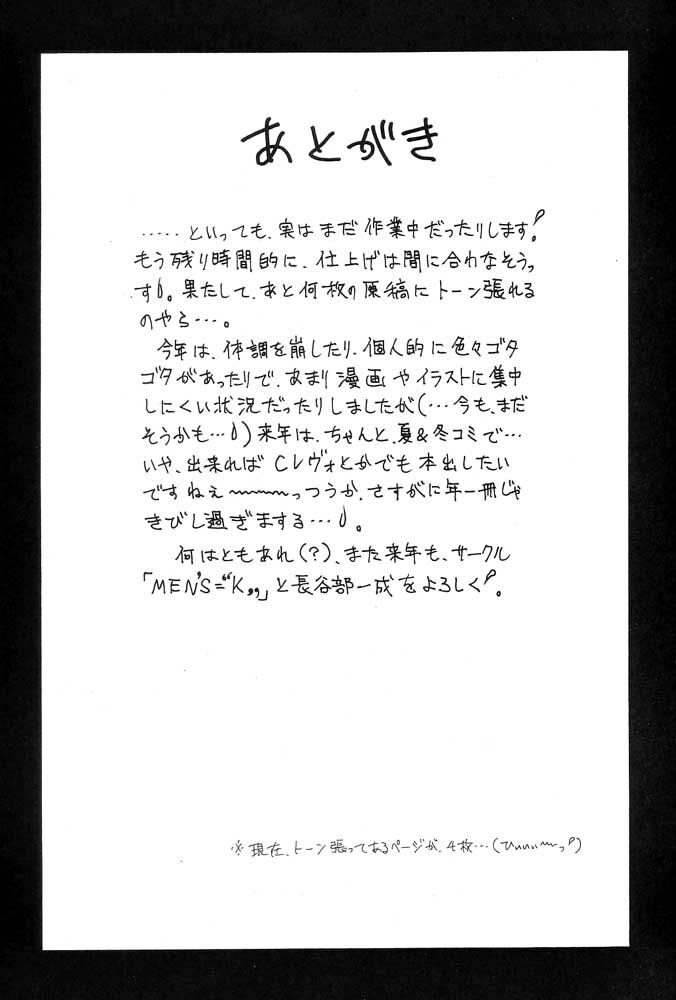 あとがき
‥‥‥といっても、実はまだ作業中だったりします!
もう残り時間的に、仕上げは間に合わなそうっ
す。果たして、あと何枚の原稿にトーン張れる
のやら…。
今年は、体調を崩したり、個人的に色々ゴタ
ゴタがあったりで、あまり漫画やイラストに集中
しにくい状況だったりしましたが(…今も、まだ
そうかも…)来年は、ちゃんと、夏&冬コミで…
いや、出来ればCレヴォとかでも本出したい
ですねえ〜〜〜っつうか、さすがに年一冊じゃ
きびし過ぎまする…。
何はともあれ(?)、また来年も、サークル
「MEN'S="K„」と長谷部一成をよろしく!。
※現在、トーン張ってあるページが、4枚…(ひぃぃぃ〜っ!)